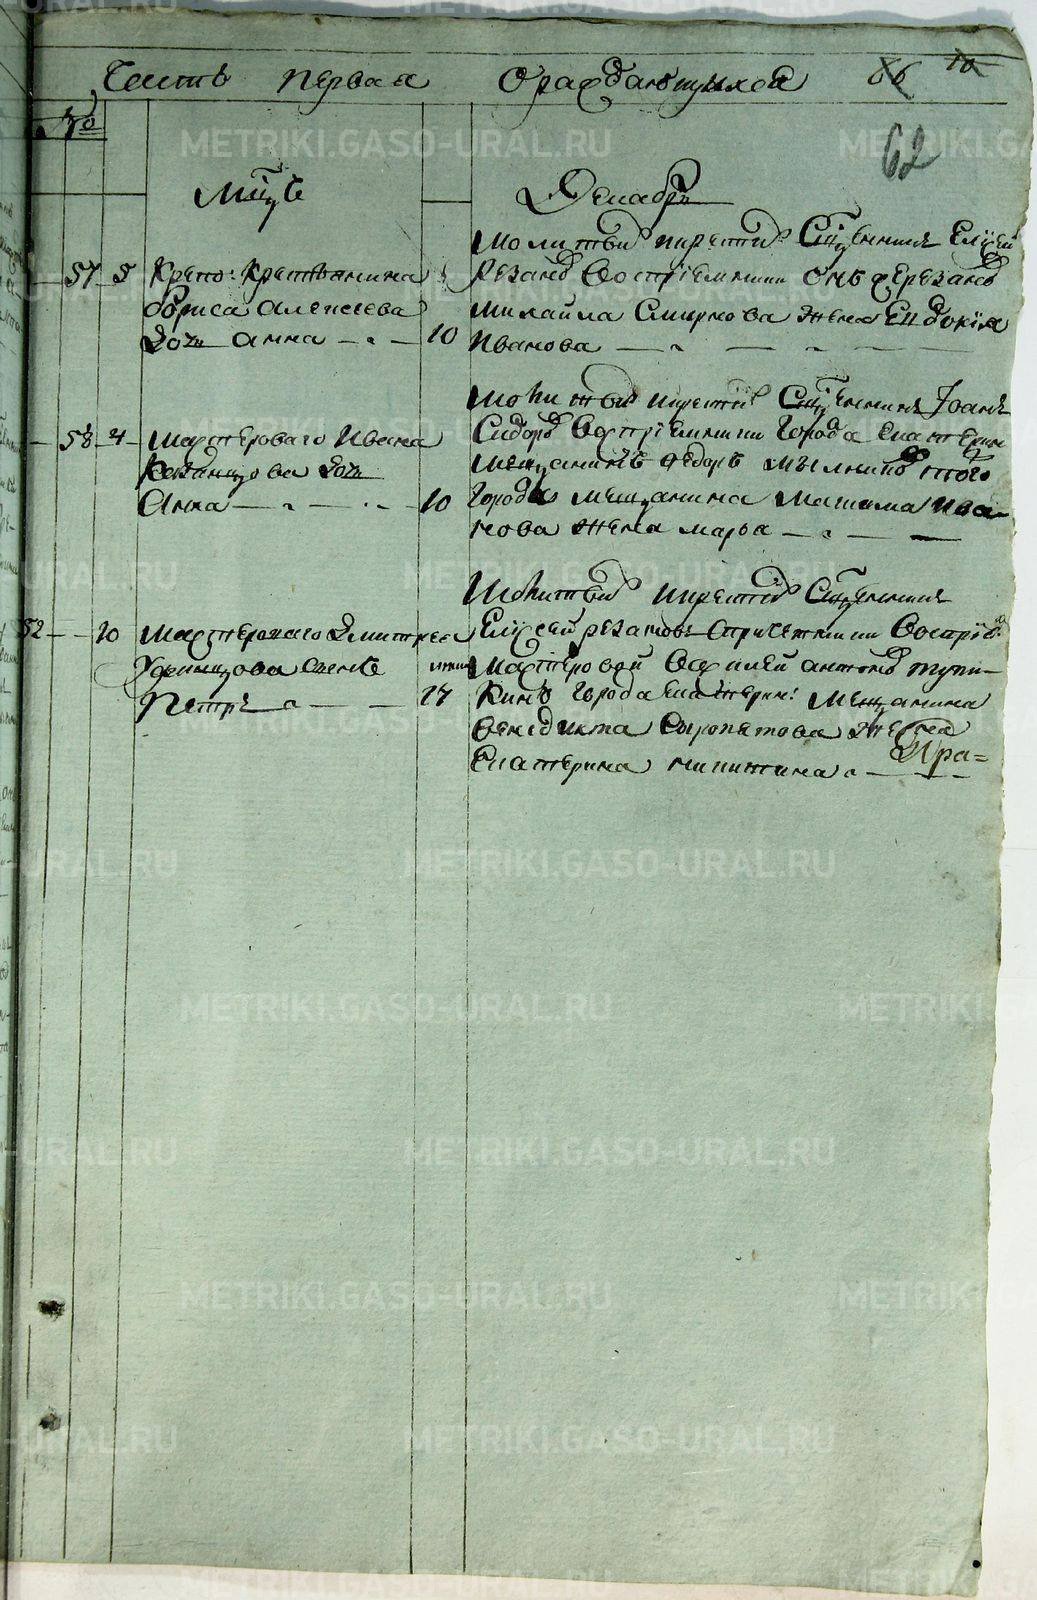 Часть первая О раждающихся 66 10
62
№
Мцъ Декабрь
57 5 Крепо: Крестьянина
Бориса Алексеева
Дочь Анна 10
Молитвы и крестилъ Сщенникъ Елисей
Резановъ Восприемники онъ же Резановъ
Михайла Смирнова жена Евдокия
Иванова
58 4 Мастероваго Ивана
Казанцова Дочь
Анна 10
Молитвы и крестилъ Сщенникъ Иоанъ
Сидоровъ Восприемники города Екатерин
мещанинъ Федоръ Мыльниковъ того
города мещанина Максима Ива-
нова жена Марья
52 20 Мастероваго Дмитрея
Уфинцова сынъ
Петръ 27
Молитвы и крестилъ Сщенникъ
Елисей Резановъ Спричетники Воспри
мастеровой Василей Антоновъ Тупи-
кинъ города Екатерин: мещанина
Венедикта Сыропятова жена
Екатерина Никитина